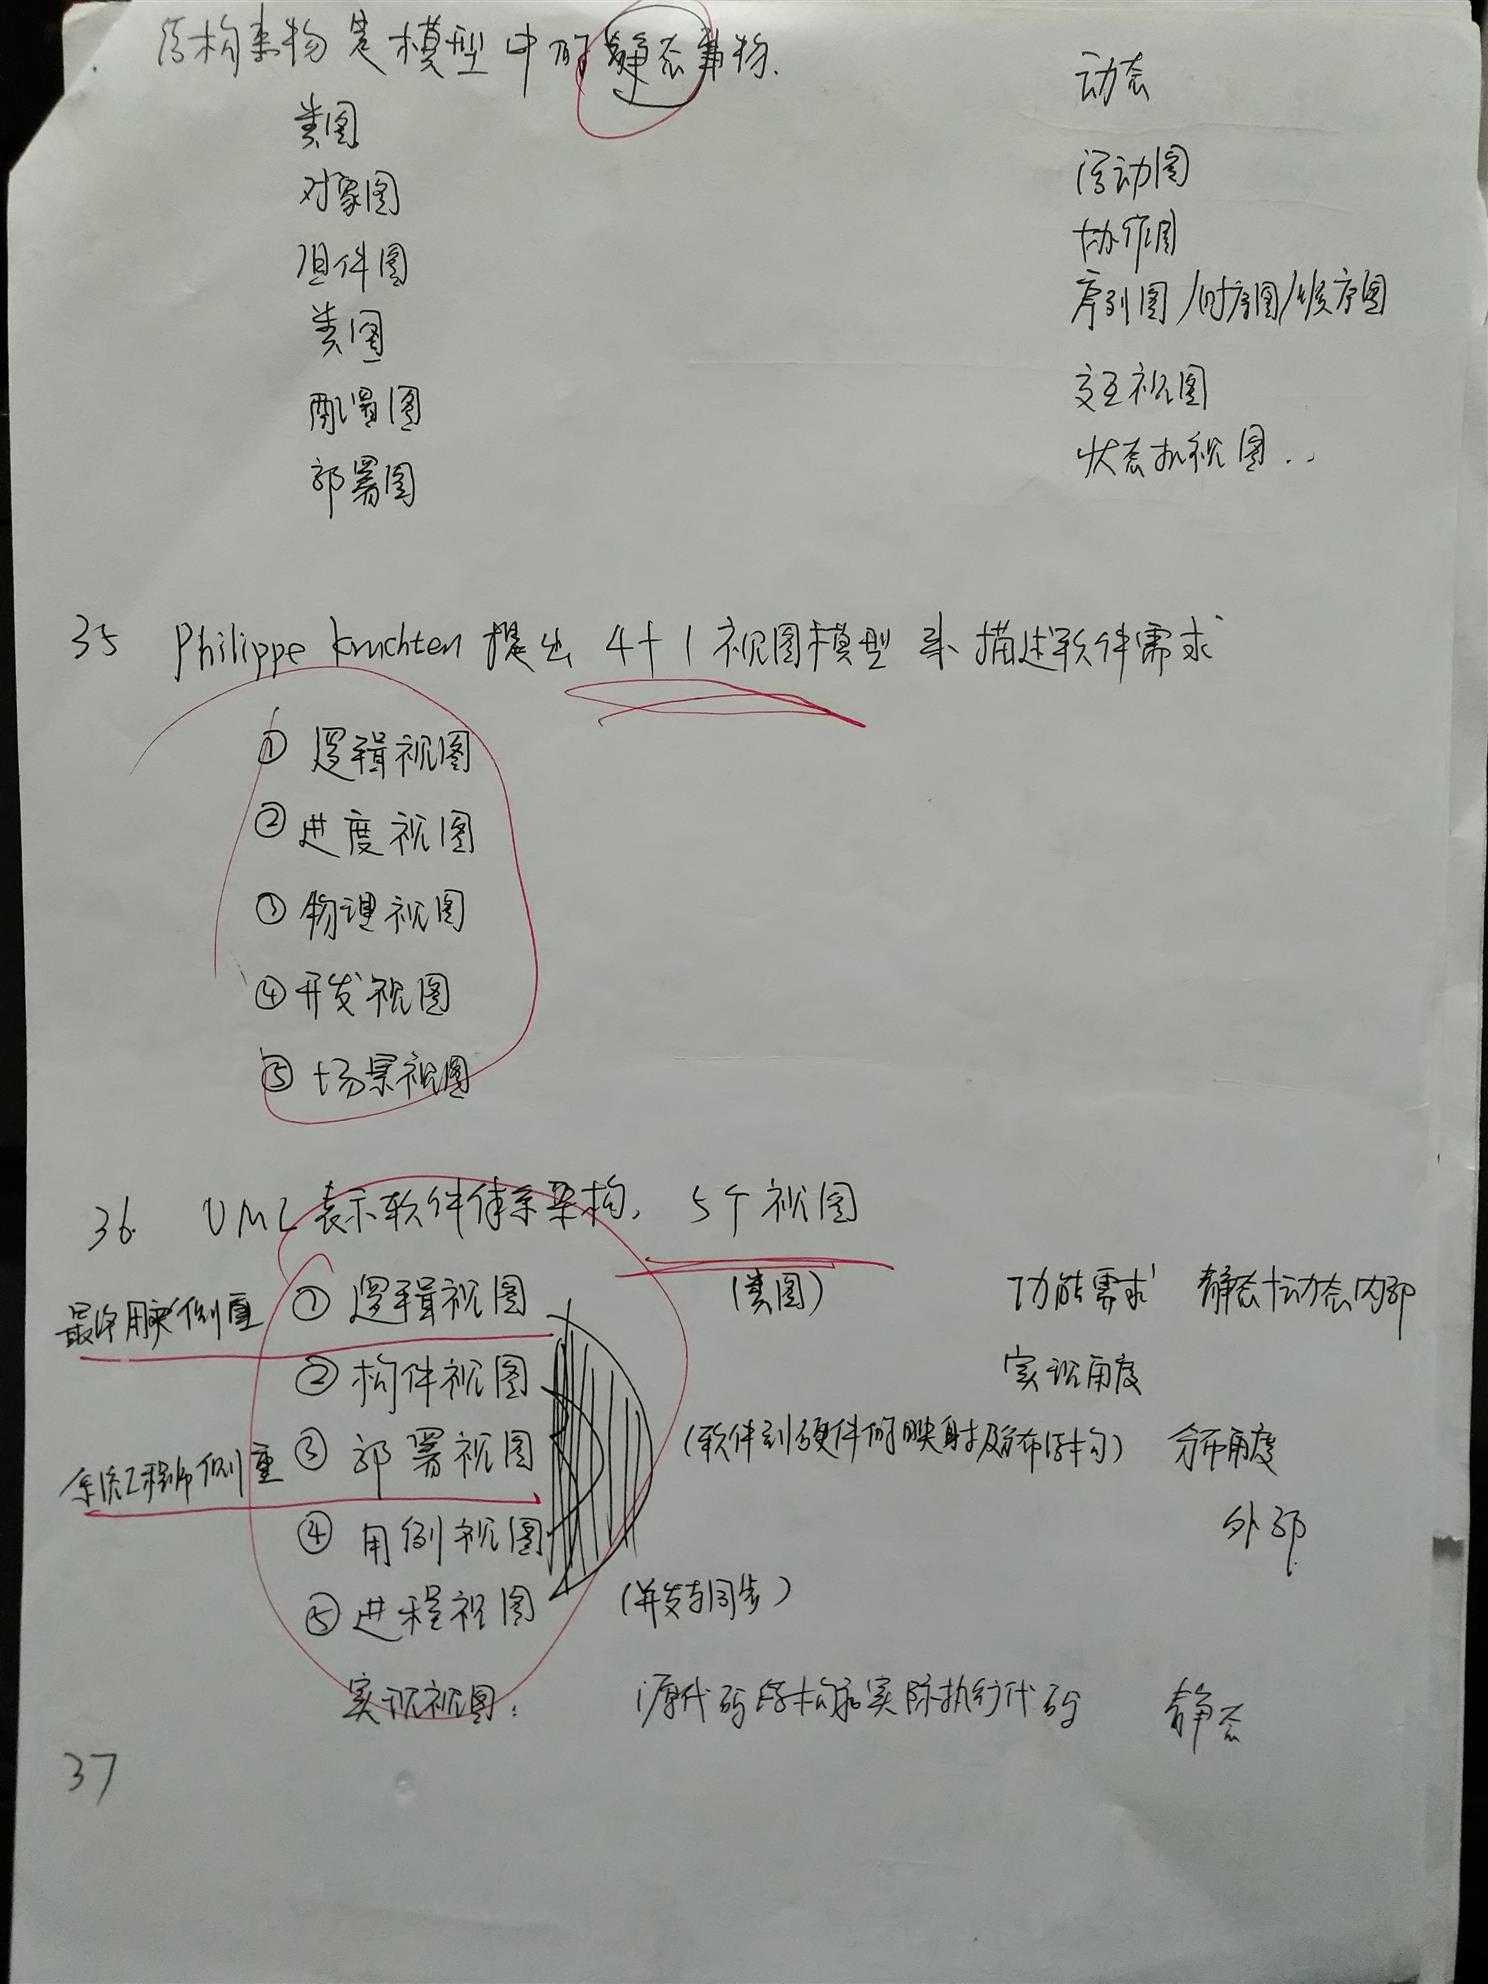 结构事物是模型中的静态事物.
动态
类图
对象图
组件图
类图
配置图
部署图
活动图
协作图
序列图/时序图/顺序图
交互视图
状态机视图..
35 Philippe Kruchten 提出 4+1视图模型 来描述软件需求
① 逻辑视图
② 进度视图
③ 物理视图
④ 开发视图
⑤ 场景视图
36. UML表示软件体系架构, 5个视图
最终用户侧重 ① 逻辑视图 (类图) 功能需求 静态+动态 内部
② 构件视图 实现角度
系统工程师侧重 ③ 部署视图 (软件到硬件的映射及分布结构) 分布角度
④ 用例视图 外部
⑤ 进程视图 (并发与同步)
实现视图: 源代码结构和实际执行代码 静态
37